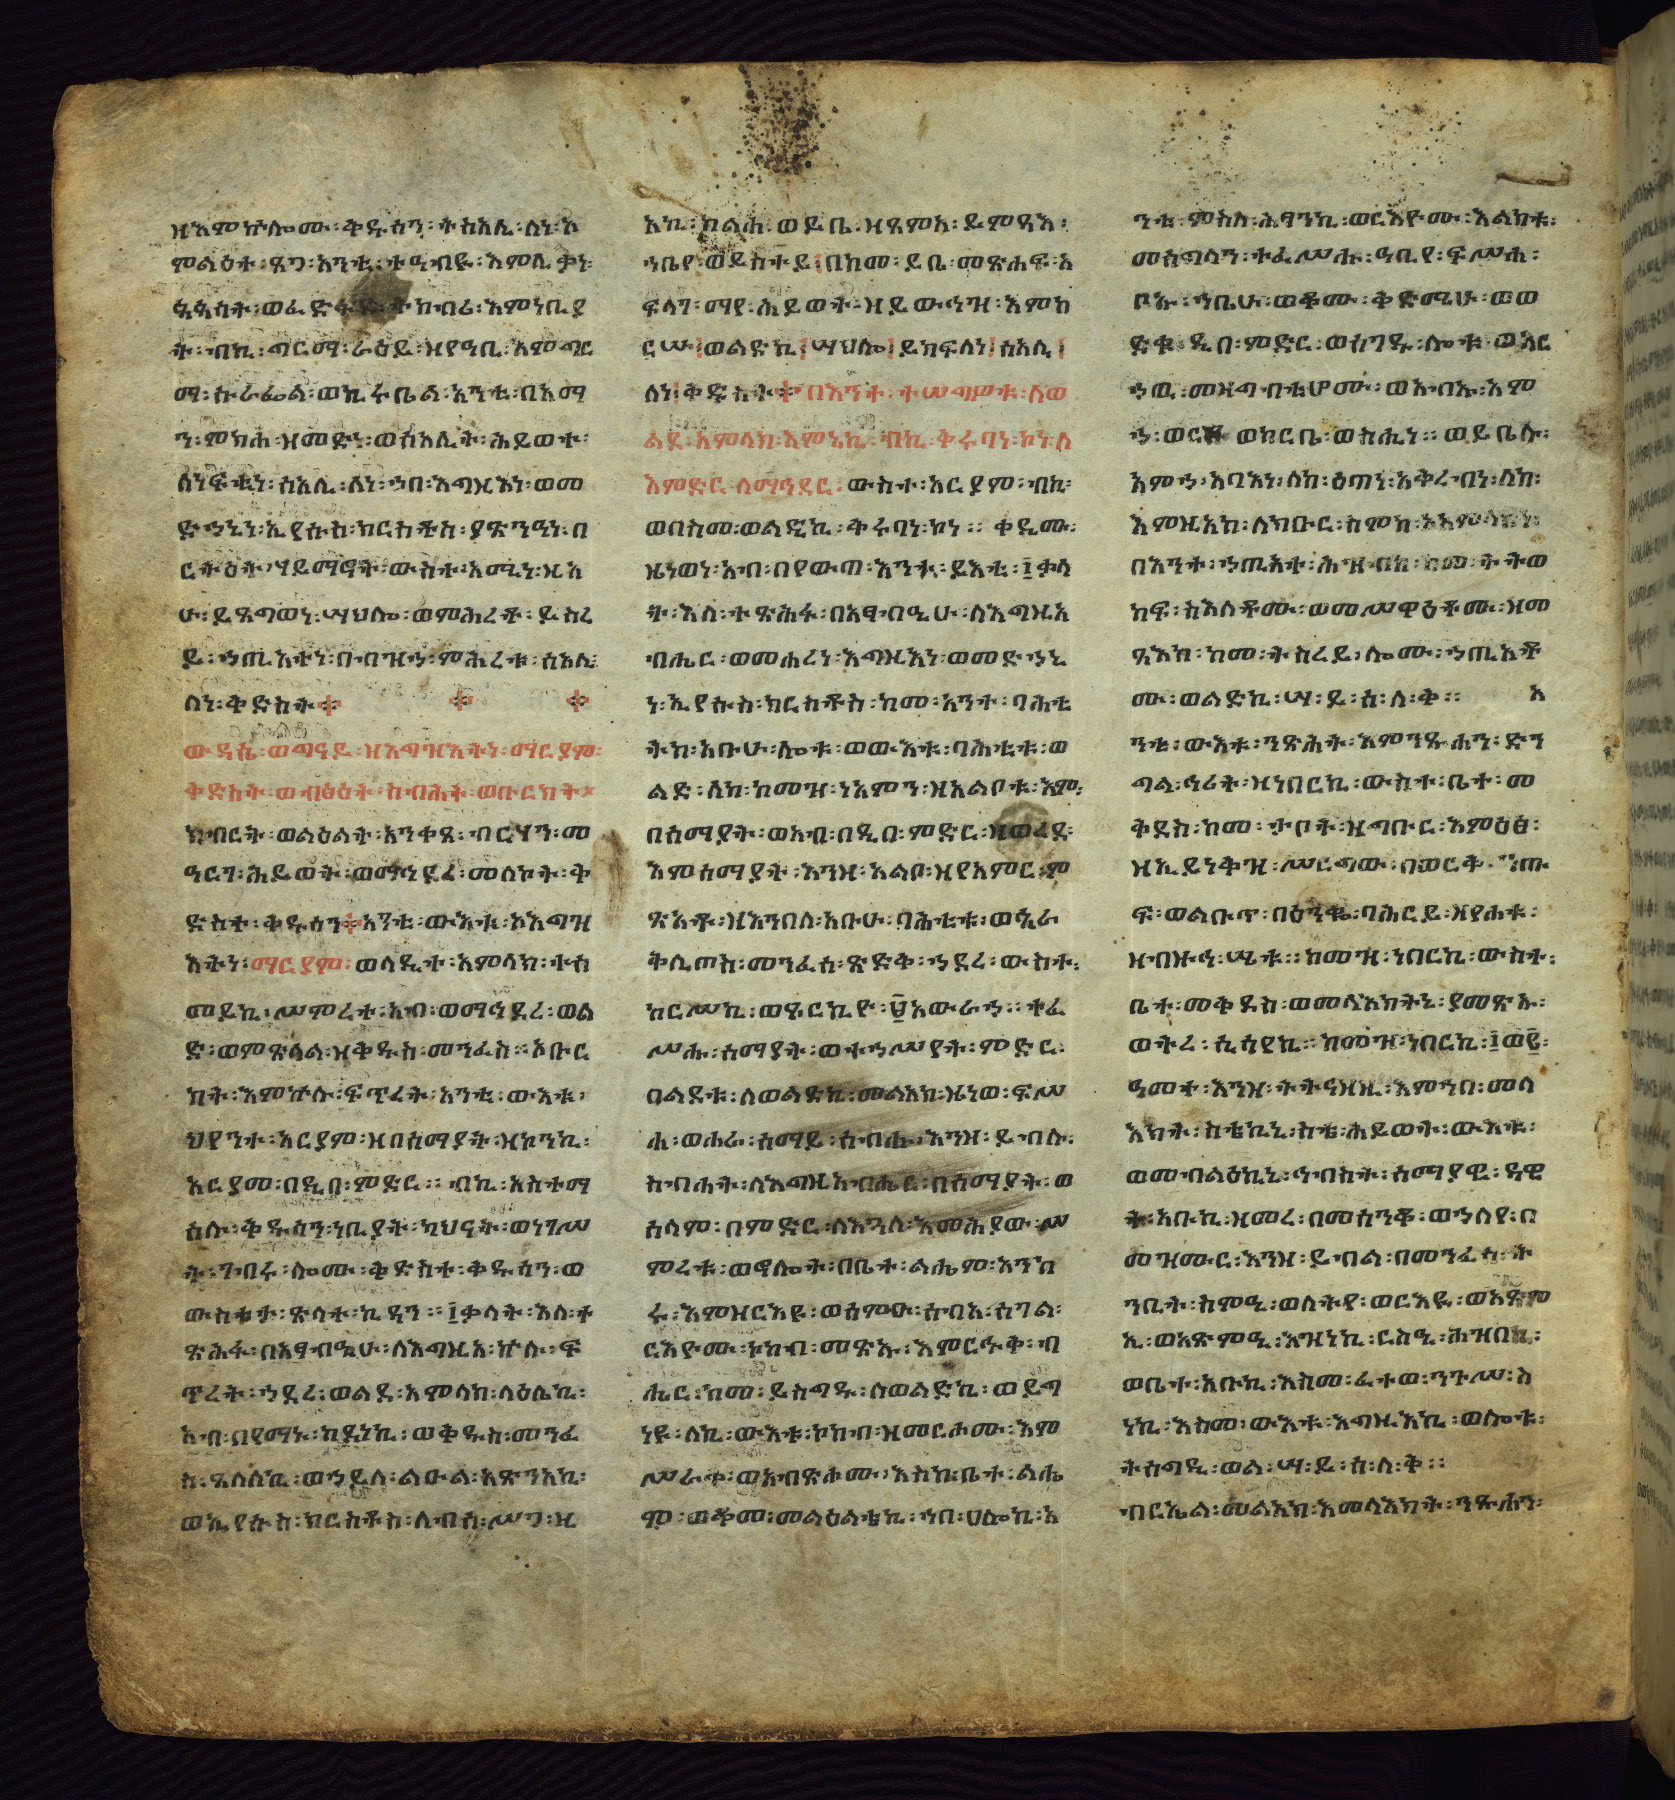 ዘእምኵሎሙ፡ቅዱሳን፡ትስእሊ፡ለነ፡እ
ምልዕተ፡ጸጋ፡አንቲ፡ተዓብዪ፡እምሊቃነ፡
ጳጳሳት፡ወፈድፋደ፡ትከብሪ፡እምነቢያ
ት፡ብኪ፡ግርማ፡ራዕይ፡ዘየዓቢ፡እምግር
ማ፡ሱራፌል፡ወኪሩቤል፡አንቲ፡በአማ
ን፡ምክሐ፡ዘመድነ፡ወሰአሊት፡ሕይወተ፡
ለነፍሳቲነ፡ሰአሊ፡ለነ፡ኀበ፡እግዚእነ፡ወመ
ድኀኒነ፡ኢየሱስ፡ክርስቶስ፡ያጽንዓነ፡በ
ርትዕት፡ሃይማኖት፡ውስተ፡አሚነ፡ዚአ
ሁ፡ይጸግወነ፡ሣህሎ፡ወምሕረቶ፡ይስረ
ይ፡ኀጢአተነ፡በብዝኀ፡ምሕረቱ፡ሰአሊ፡
ለነ፡ቅድስት
ውዳሴ፡ወግናይ፡ዘእግዝእትነ፡ማርያም፡
ቅድስት፡ወብፅዕት፡ስብሕት፡ወቡርክት
ክብርት፡ወልዕልት፡አንቀጸ፡ብርሃን፡መ
ዓርገ፡ሕይወት፡ወማኅደረ፡መለኮት፡ቅ
ድስተ፡ቅዱሳን፡አንቲ፡ውእቱ፡ኦእግዝ
እትነ፡ማርያም፡ወላዲተ፡አምላክ፡ተሰ
መይኪ፡ሥምረተ፡አብ፡ወማኅደረ፡ወል
ድ፡ወምጽላል፡ዘቅዱስ፡መንፈስ፡ኦቡር
ክት፡እምኵሉ፡ፍጥረት፡አንቲ፡ውእቱ፡
ህየንተ፡አርያም፡ዘበሰማያት፡ዘኮንኪ፡
አርያመ፡በዲበ፡ምድር፡ብኪ፡አስተማ
ሰሉ፡ቅዱሳን፡ነቢያት፡ካህናት፡ወነገሥ
ት፡ገብሩ፡ሎሙ፡ቅድስተ፡ቅዱሳን፡ወ
ውስቴታ፡ጽላተ፡ኪዳን፡፲ቃላት፡እለ፡ተ
ጽሕፋ፡በአፃብዒሁ፡ለእግዚአ፡ኵሉ፡ፍ
ጥረት፡ኀደረ፡ወልደ፡አምላክ፡ላዕሌኪ፡
አብ፡በየማኑ፡ከደነኪ፡ወቅዱስ፡መንፈ
ስ፡ጸለለኪ፡ወኀይለ፡ልዑል፡አጽንአኪ፡
ወኢየሱስ፡ክርስቶስ፡ለብሰ፡ሥጋ፡ዚ
አኪ፡ከልሐ፡ወይቤ፡ዘጸምአ፡ይምጻእ፡
ኀቤየ፡ወይስተይ፡በከመ፡ይቤ፡መጽሐፍ፡አ
ፍላገ፡ማየ፡ሕይወት፡ዘይውኅዝ፡እምከ
ርሡ፡ወልድኪ፡ሣህሎ፡ይክፍለነ፡ሰአሊ፡
ለነ፡ቅድስት፡በእንተ፡ተሠግዎቱ፡ለወ
ልደ፡አምላክ፡እምኔኪ፡ብኪ፡ቅሩባነ፡ኮነ፡ለ
እምድር፡ለማኅደር፡ውስተ፡አርያም፡ብኪ፡
ወበስመ፡ወልድኪ፡ቅሩባነ፡ኮነ፡ቀዲሙ፡
ዜነወነ፡አብ፡በየውጣ፡እንተ፡ይእቲ፡፲ቃላ
ት፡እለ፡ተጽሕፋ፡በአፃብዒሁ፡ለእግዚአ
ብሔር፡ወመሐረነ፡እግዚእነ፡ወመድኀኒ
ነ፡ኢየሱስ፡ክርስቶስ፡ከመ፡አንተ፡ባሕቲ
ትከ፡አቡሁ፡ሎቱ፡ወውእቱ፡ባሕቲቱ፡ወ
ልድ፡ለከ፡ከመዝ፡ነአምን፡ዘአልቦቱ፡እም፡
በሰማያት፡ወአብ፡በዲበ፡ምድር፡ዘወረደ፡
እምሰማያት፡እንዘ፡አልቦ፡ዘየአምር፡ም
ጽአቶ፡ዘእንበለ፡አቡሁ፡ባሕቲቱ፡ወጰራ
ቅሊጦስ፡መንፈሰ፡ጽድቅ፡ኀደረ፡ውስተ፡
ከርሥኪ፡ወፆርኪዮ፡፱አውራኀ፡ተፈ
ሥሑ፡ሰማያት፡ወተኀሥየት፡ምድር፡
በልደቱ፡ለወልድኪ፡መልአክ፡ዜነወ፡ፍሥ
ሐ፡ወሐራ፡ሰማይ፡ሰብሑ፡እንዘ፡ይብሉ፡
ስብሐት፡ለእግዚአብሔር፡በሰማያት፡ወ
ሰላም፡በምድር፡ለእጓለ፡እመሕያው፡ሥ
ምረቱ፡ወኖሎት፡በቤተ፡ልሔም፡አንከ
ሩ፡እምዘርእዩ፡ወሰምዑ፡ሰብአ፡ሰገል፡
ርእዮሙ፡ኮከብ፡መጽኡ፡እምርኁቅ፡ብ
ሔር፡ከመ፡ይስግዱ፡ለወልድኪ፡ወይግ
ነዩ፡ለኪ፡ውእቱ፡ኮከብ፡ዘመርሖሙ፡እም
ሥራቀ፡ወአብጽሖሙ፡እስከ፡ቤተ፡ልሔ
ም፡ወቆመ፡መልዕልቴኪ፡ኀበ፡ሀሎኪ፡አ
ንቲ፡ምስለ፡ሕፃንኪ፡ወርእዮሙ፡እልክቱ፡
መሰግላን፡ተፈሥሑ፡ዓቢየ፡ፍሥሐ፡
ቦኡ፡ኀቤሁ፡ወቆሙ፡ቅድሜሁ፡ወወ
ድቁ፡ዲበ፡ምድር፡ወሰገዱ፡ሎቱ፡ወአር
ኀዉ፡መዛግብቲሆሙ፡ወአብኡ፡አም
ኀ፡ወርቀ፡ወከርቤ፡ወስሒነ፡ወይቤሉ፡
አምኀ፡አባእነ፡ለከ፡ዕጣነ፡አቅረብነ፡ለከ፡
እምዚአከ፡ለክቡር፡ስምከ፡ኦአምላክነ፡
በእንተ፡ኀጢአቱ፡ሕዝብከ፡ከመ፡ትትወ
ከፍ፡ስእለቶሙ፡ወመሥዋዕቶሙ፡ዘመ
ጻእከ፡ከመ፡ትስረይ፡ሎሙ፡ኀጢአቶ
ሙ፡ወልድኪ፡ሣ፡ይ፡ሰ፡ለ፡ቅ፡አ
ንቲ፡ውእቱ፡ንጽሕት፡እምንጹሐን፡ድን
ግል፡ኄሪት፡ዘነበርኪ፡ውስተ፡ቤተ፡መ
ቅደስ፡ከመ፡ታቦት፡ዘግቡር፡እምዕፅ፡
ዘኢይነቅዝ፡ሥርግው፡በወርቅ፡ንጡ
ፍ፡ወልቡጥ፡በዕንቈ፡ባሕርይ፡ዘየሐቱ፡
ዘብዙኅ፡ሤጡ፡ከመዝ፡ነበርኪ፡ውስተ፡
ቤተ፡መቅደስ፡ወመላእክትኒ፡ያመጽኡ፡
ወትረ፡ሲሳየኪ፡ከመዝ፡ነበርኪ፡፲ወ፪፡
ዓመተ፡እንዘ፡ትትናዘዚ፡እምኀበ፡መላ
እክት፡ስቴኪኒ፡ስቴ፡ሕይወት፡ውእቱ፡
ወመብልዕኪኒ፡ኅብስት፡ሰማያዊ፡ዳዊ
ት፡አቡኪ፡ዘመረ፡በመሰንቆ፡ወኀለየ፡በ
መዝሙር፡እንዘ፡ይብል፡በመንፈሰ፡ት
ንቢት፡ስምዒ፡ወለትየ፡ወርእዪ፡ወአጽም
ኢ፡ወአጽምዒ፡እዝነኪ፡ርስዒ፡ሕዝበኪ፡
ወቤተ፡አቡኪ፡እስመ፡ፈተወ፡ንጉሥ፡ስ
ነኪ፡እስመ፡ውእቱ፡እግዚእኪ፡ወሎቱ፡
ትሰግዲ፡ወል፡ሣ፡ይ፡ሰ፡ለ፡ቅ፡
ብርኤል፡መልአክ፡እመላእክት፡ንጹሐን፡